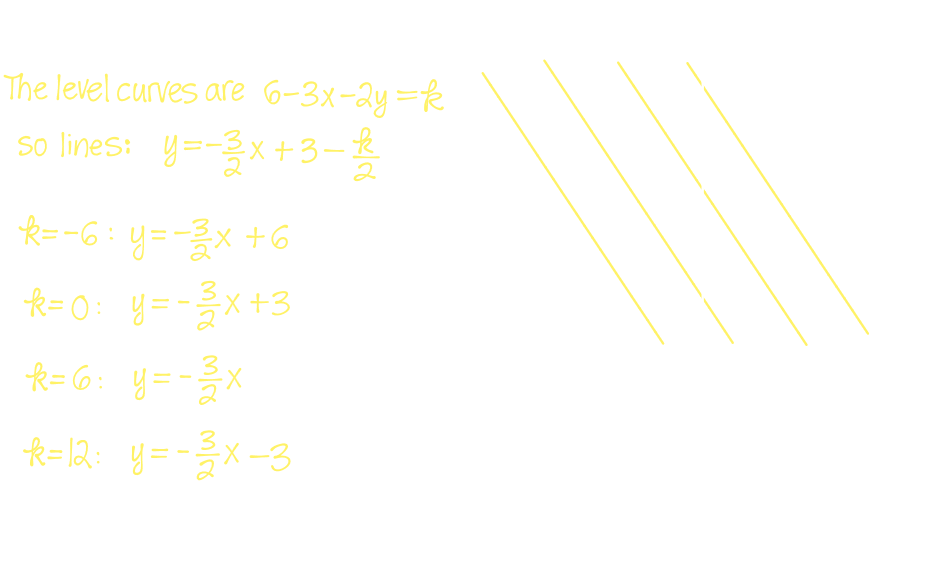 The level curves are 6-3x-2y=k
so lines: y=-3/2 x+3-k/2
k=-6: y=-3/2 x+6
k=0: y=-3/2 x+3
k=6: y=-3/2 x
k=12: y=-3/2 x-3